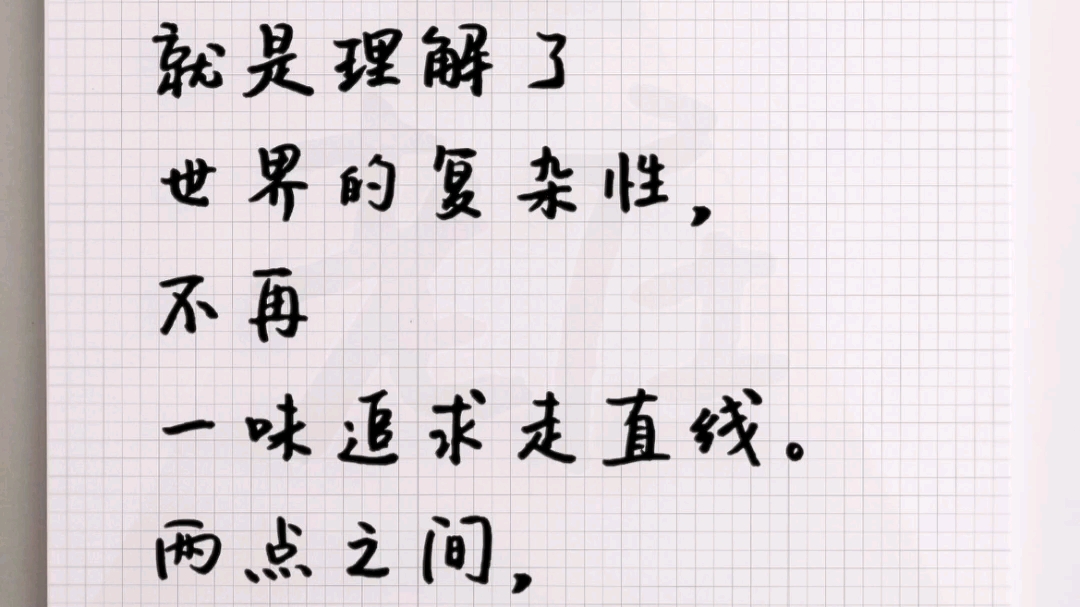 就是理解了
世界的复杂性，
不再
一味追求走直线。
两点之间，